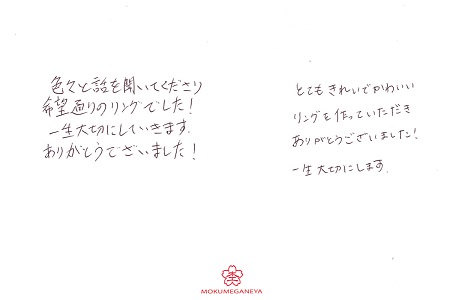 色々と話を聞いてくださり
希望通りのリングでした!
一生大切にしていきます。
ありがとうございました!
とてもきれいでかわいい
リングを作っていただき
ありがとうございました!
一生大切にします。
MOKUMEGANEYA